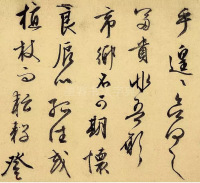 乎遑遑欲何之
富貴非吾願
帝鄉不可期懷
良辰以孤往或
植杖而耘耔登